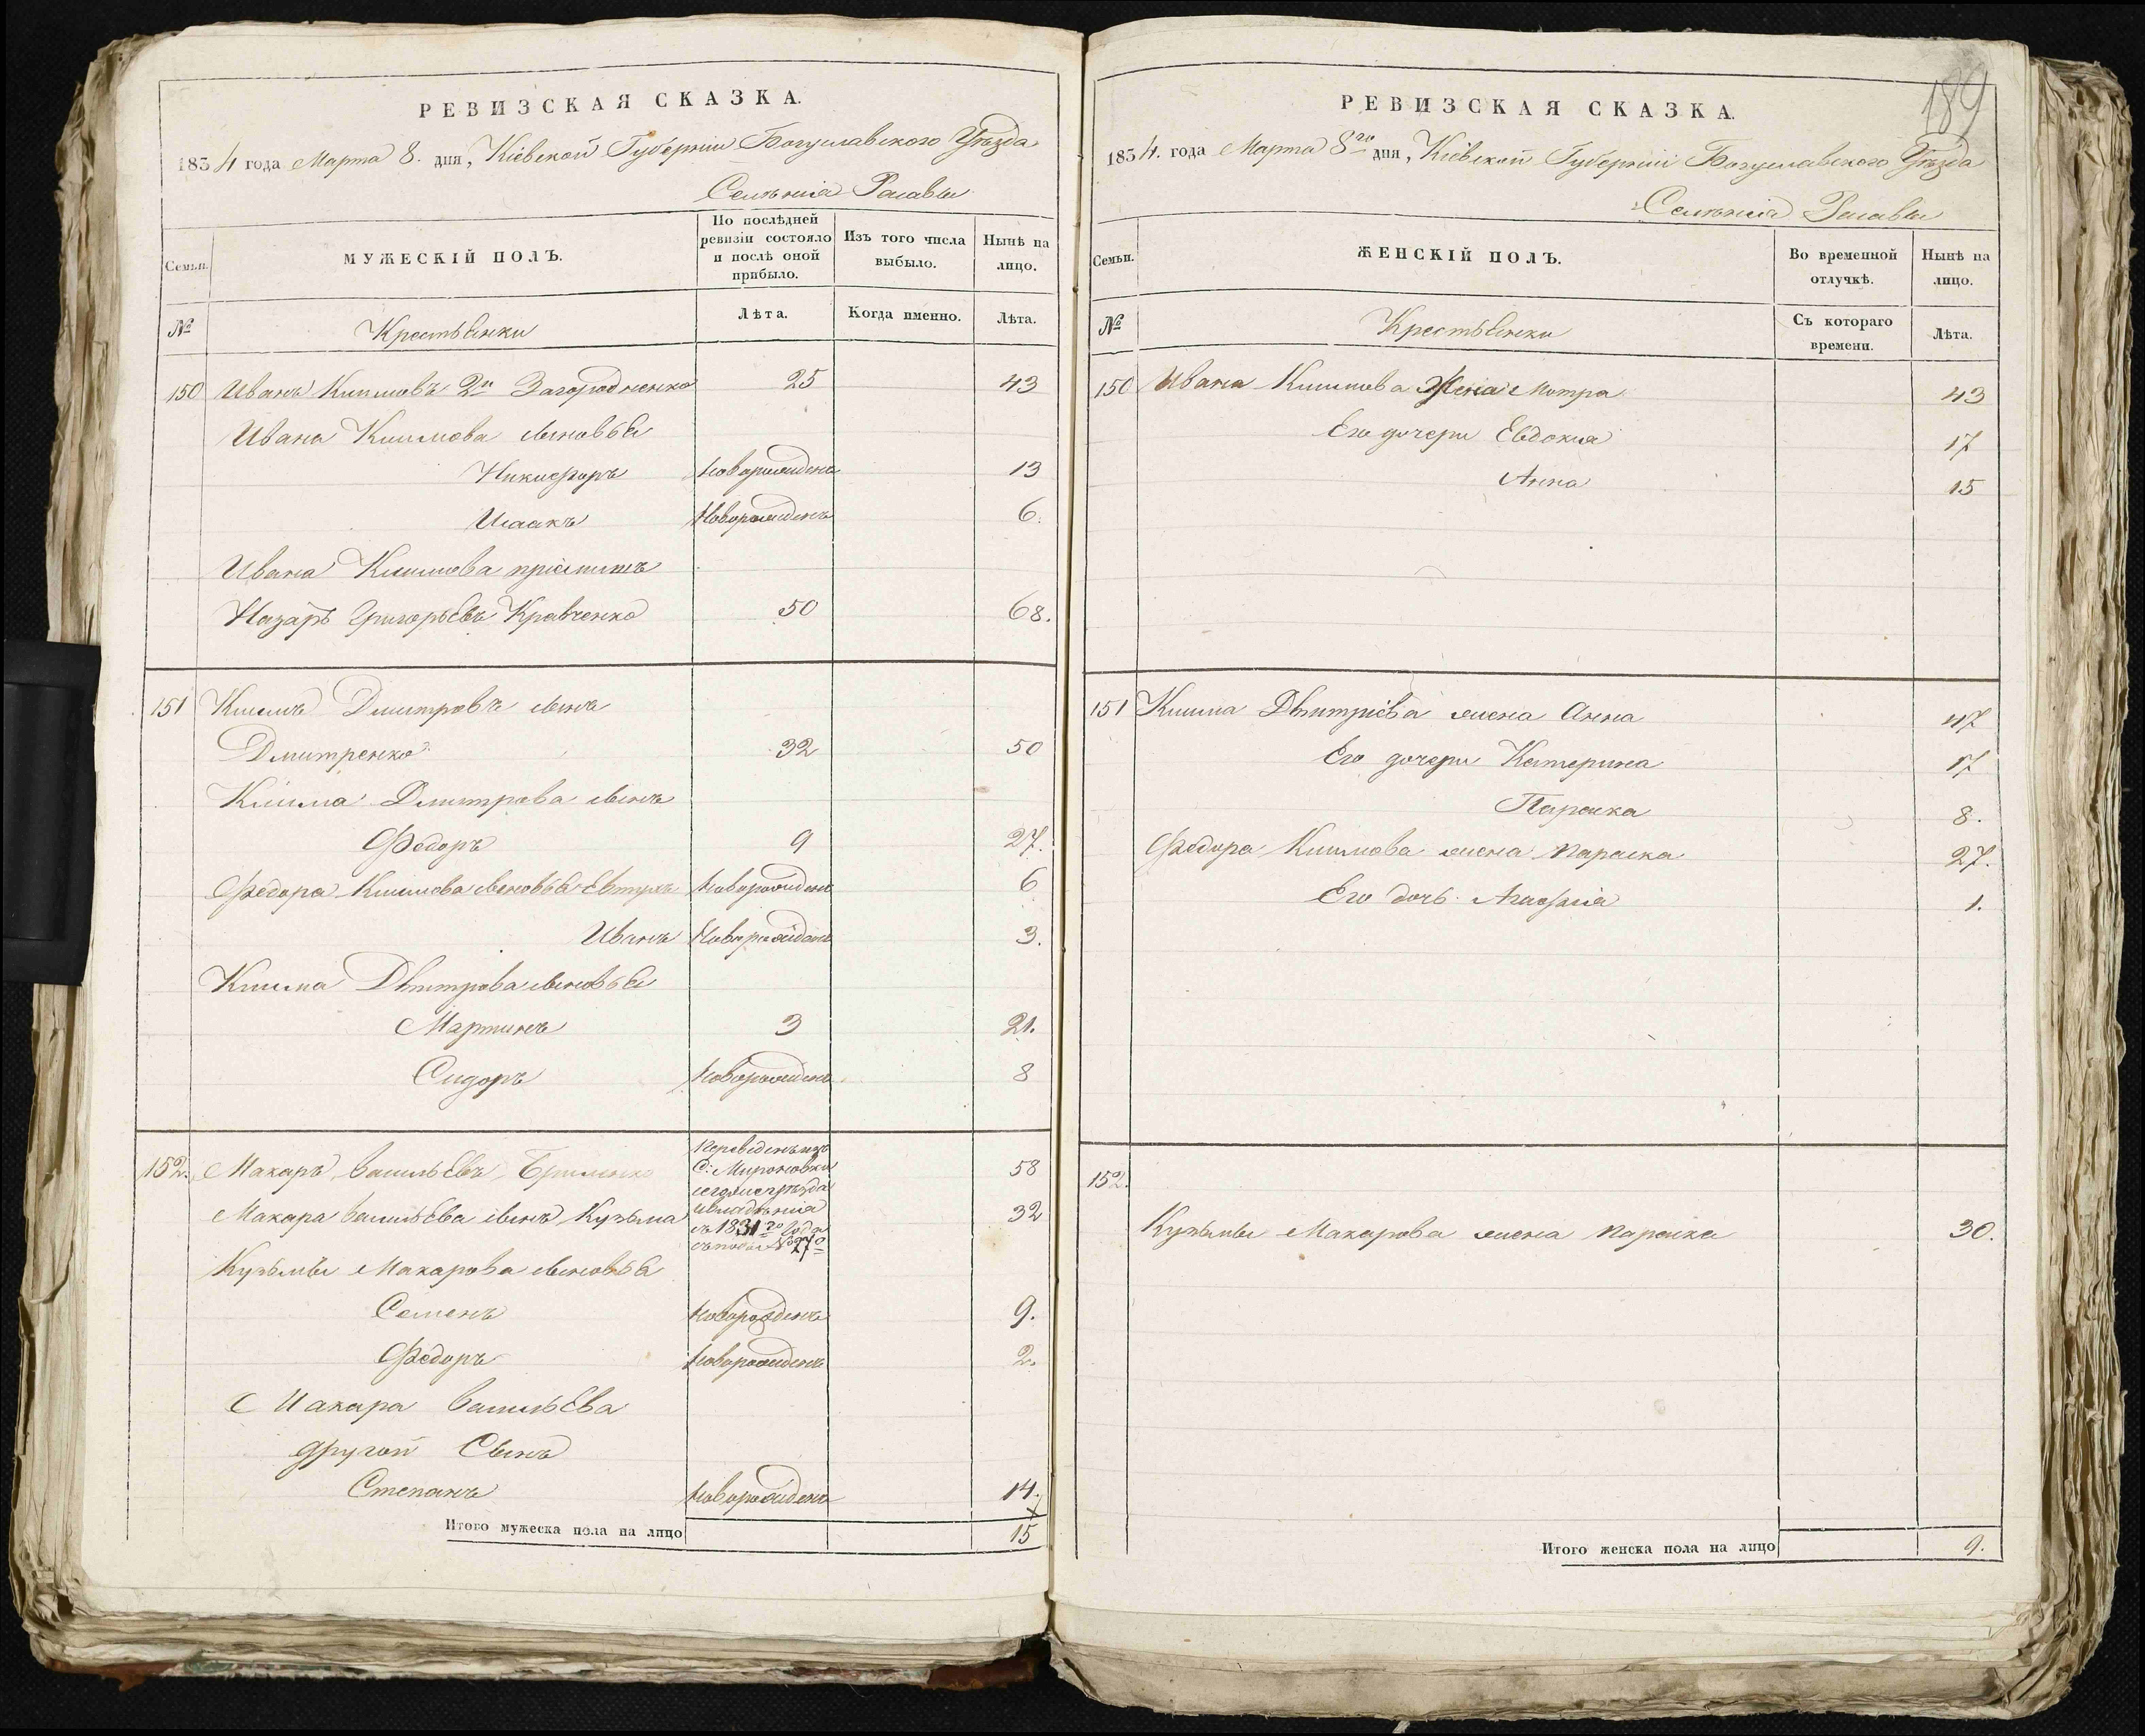 РЕВИЗСКАЯ СКАЗКА.
1834 года Марта 8. дня, Кіевской Губерніи Богуславского Уѣзда
Селѣнія Расавы
Семьи.
МУЖЕСКІЙ ПОЛЪ.
По послѣдней ревизіи состояло и послѣ оной прибыло.
Изъ того числа выбыло.
Нынѣ на лицо.
№
Крестьянки
Лѣта.
Когда именно.
Лѣта.
150 Иванъ Климовъ 2й Загородненко 25 43
Ивана Климова сыновья
Никифоръ новорожденъ 13
Исаакъ Новорожденъ 6.
Ивана Климова пріемышъ
Назаръ Григорьевъ Кравченко 50 68.
151 Климъ Дмитровъ сынъ
Дмитренко 32 50
Клима Дмитрова сынъ
Федоръ 9 27.
Федора Климова сыновья Евтухъ новорожденъ 6
Иванъ Новорожденъ 3.
Клима Дмитрова сыновья
Мартинъ 3 21.
Сидоръ новорожденъ 8
152. Макаръ Васильевъ 58
переведенъ изъ
С: Мироновки
сегоже уѣзда
ивладѣнія
съ 1831го года
Макара Васильева сынъ Кузьма 32
Кузьмы Макарова сыновья
Семенъ новорожденъ 9.
Федоръ новорожденъ 2.
Макара Васильева
другой Сынъ
Степанъ новорожденъ 14.
Итого мужеска пола на лицо 15
189
РЕВИЗСКАЯ СКАЗКА.
1834. года Марта 8го дня, Кіевской Губерніи Богуславского Уѣзда
Селѣнія Расавы
Семьи.
ЖЕНСКІЙ ПОЛЪ.
Во временной отлучкѣ.
Нынѣ на лицо.
№
Крестьянки
Съ котораго времени.
Лѣта.
150 Ивана Климова Жена Мотра 43
Его дочери Евдокия 17
Анна 15
151 Клима Дмитріева жена Анна 47
Его дочери Катерина 17
Параска 8.
Федора Климова жена Параска 27.
Его дочь Агафія 1.
152.
Кузьмы Макарова жена Параска 30.
Итого женска пола на лицо 9.